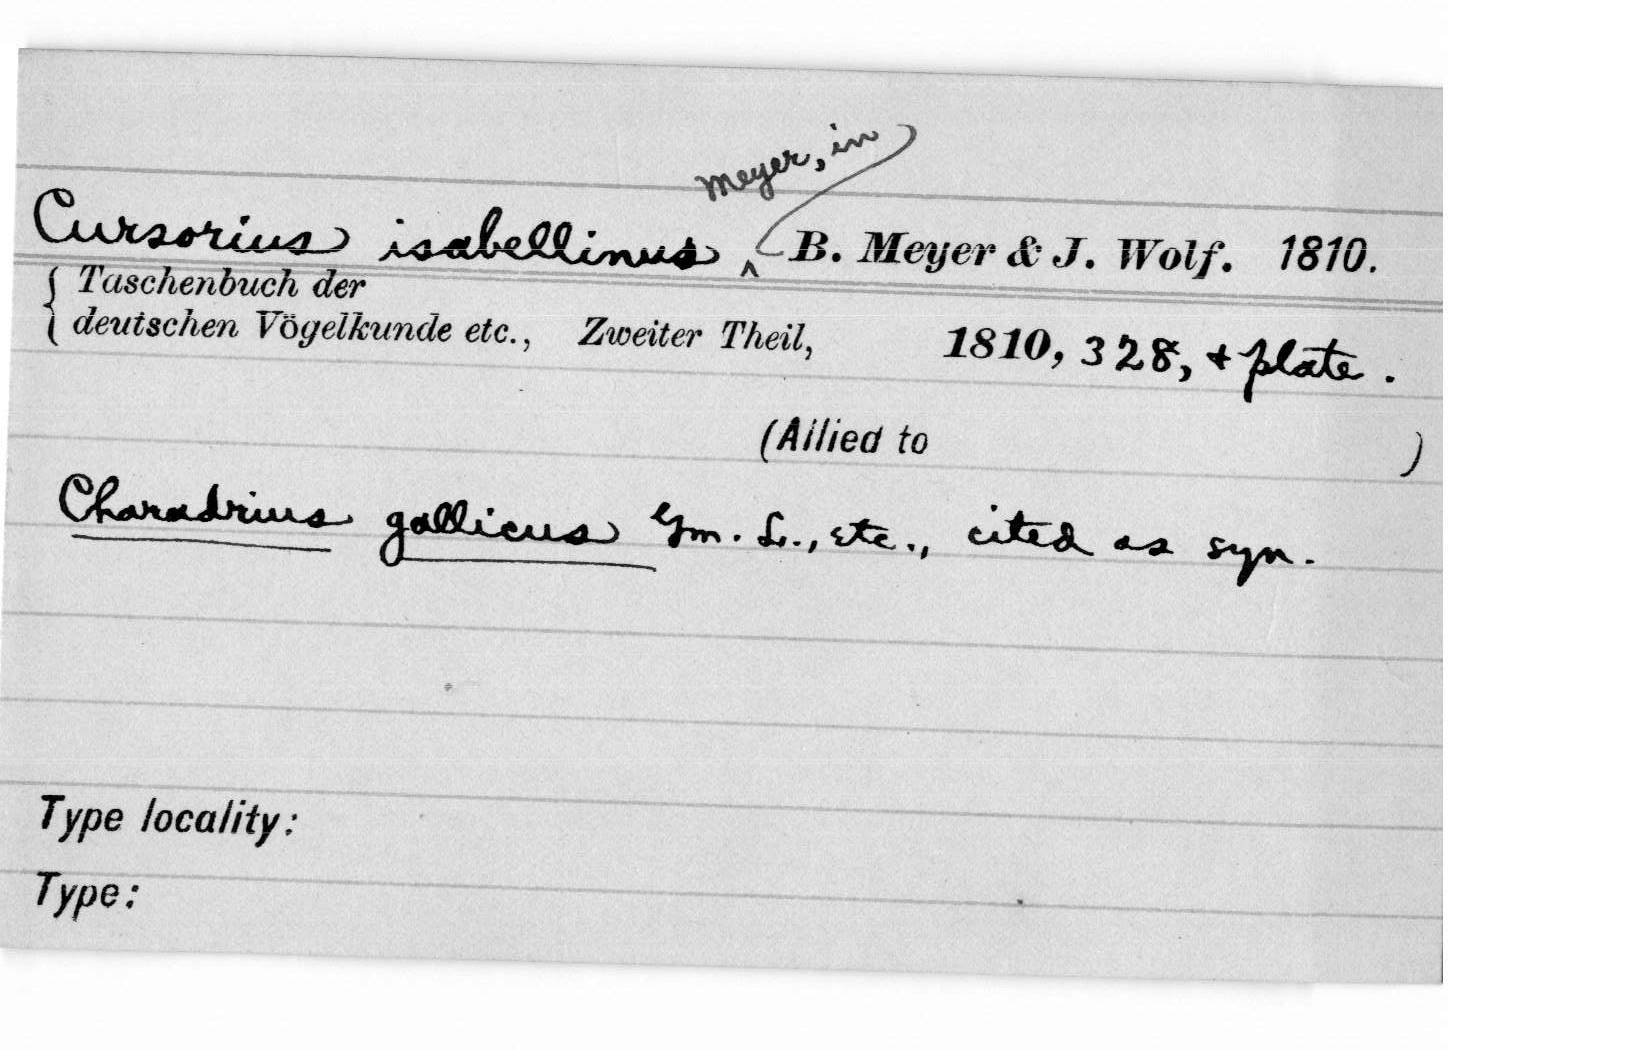 Meyer, in
Cursorius isabellinus ^ B. Meyer & J. Wolf. 1810.
{ Taschenbuch der
deutschen Vögelkunde etc., Zweiter Theil, 1810, 328, + plate.
(Allied to )
Charadrius gallicus Gm. L., etc., cited as syn.
Type locality:
Type: